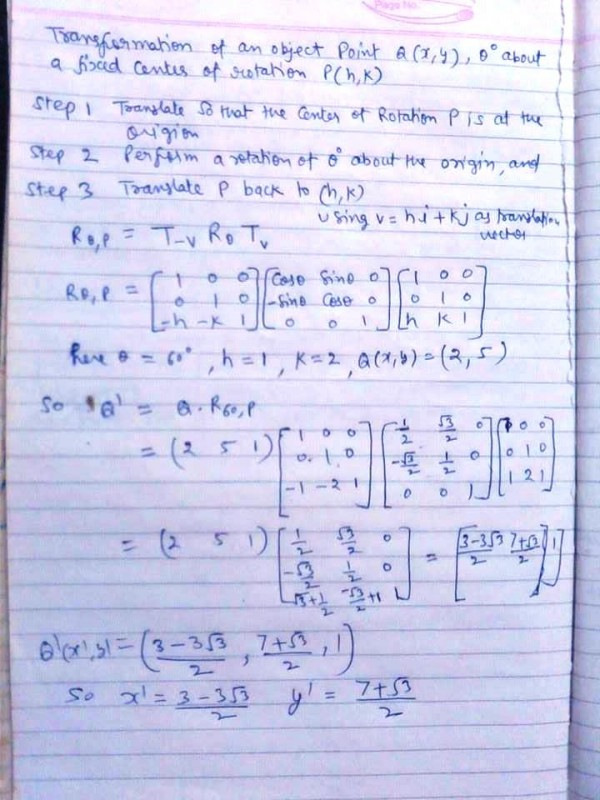 Page No.
Transformation of an object Point Q(x,y), θ° about
a fixed center of rotation P(h,k)
Step 1 Translate so that the center of Rotation P is at the
origion
Step 2 Perform a rotation of θ° about the origin, and
Step 3 Translate P back to (h,k)
using v = hi + kj as translation
vector
Rθ,P = T-v Rθ Tv
Rθ,P = [1 0 0; 0 1 0; -h -k 1] [cosθ sinθ 0; -sinθ cosθ 0; 0 0 1] [1 0 0; 0 1 0; h k 1]
here θ = 60°, h = 1, k = 2, Q(x,y) = (2,5)
So Q' = Q. R60,P
= (2 5 1) [1 0 0; 0 1 0; -1 -2 1] [1/2 √3/2 0; -√3/2 1/2 0; 0 0 1] [1 0 0; 0 1 0; 1 2 1]
= (2 5 1) [1/2 √3/2 0; -√3/2 1/2 0; √3+1/2 -√3/2+1 1] = [3-3√3/2 7+√3/2 1]
Q'(x',y') = (3-3√3/2, 7+√3/2, 1)
So x' = 3-3√3/2 y' = 7+√3/2